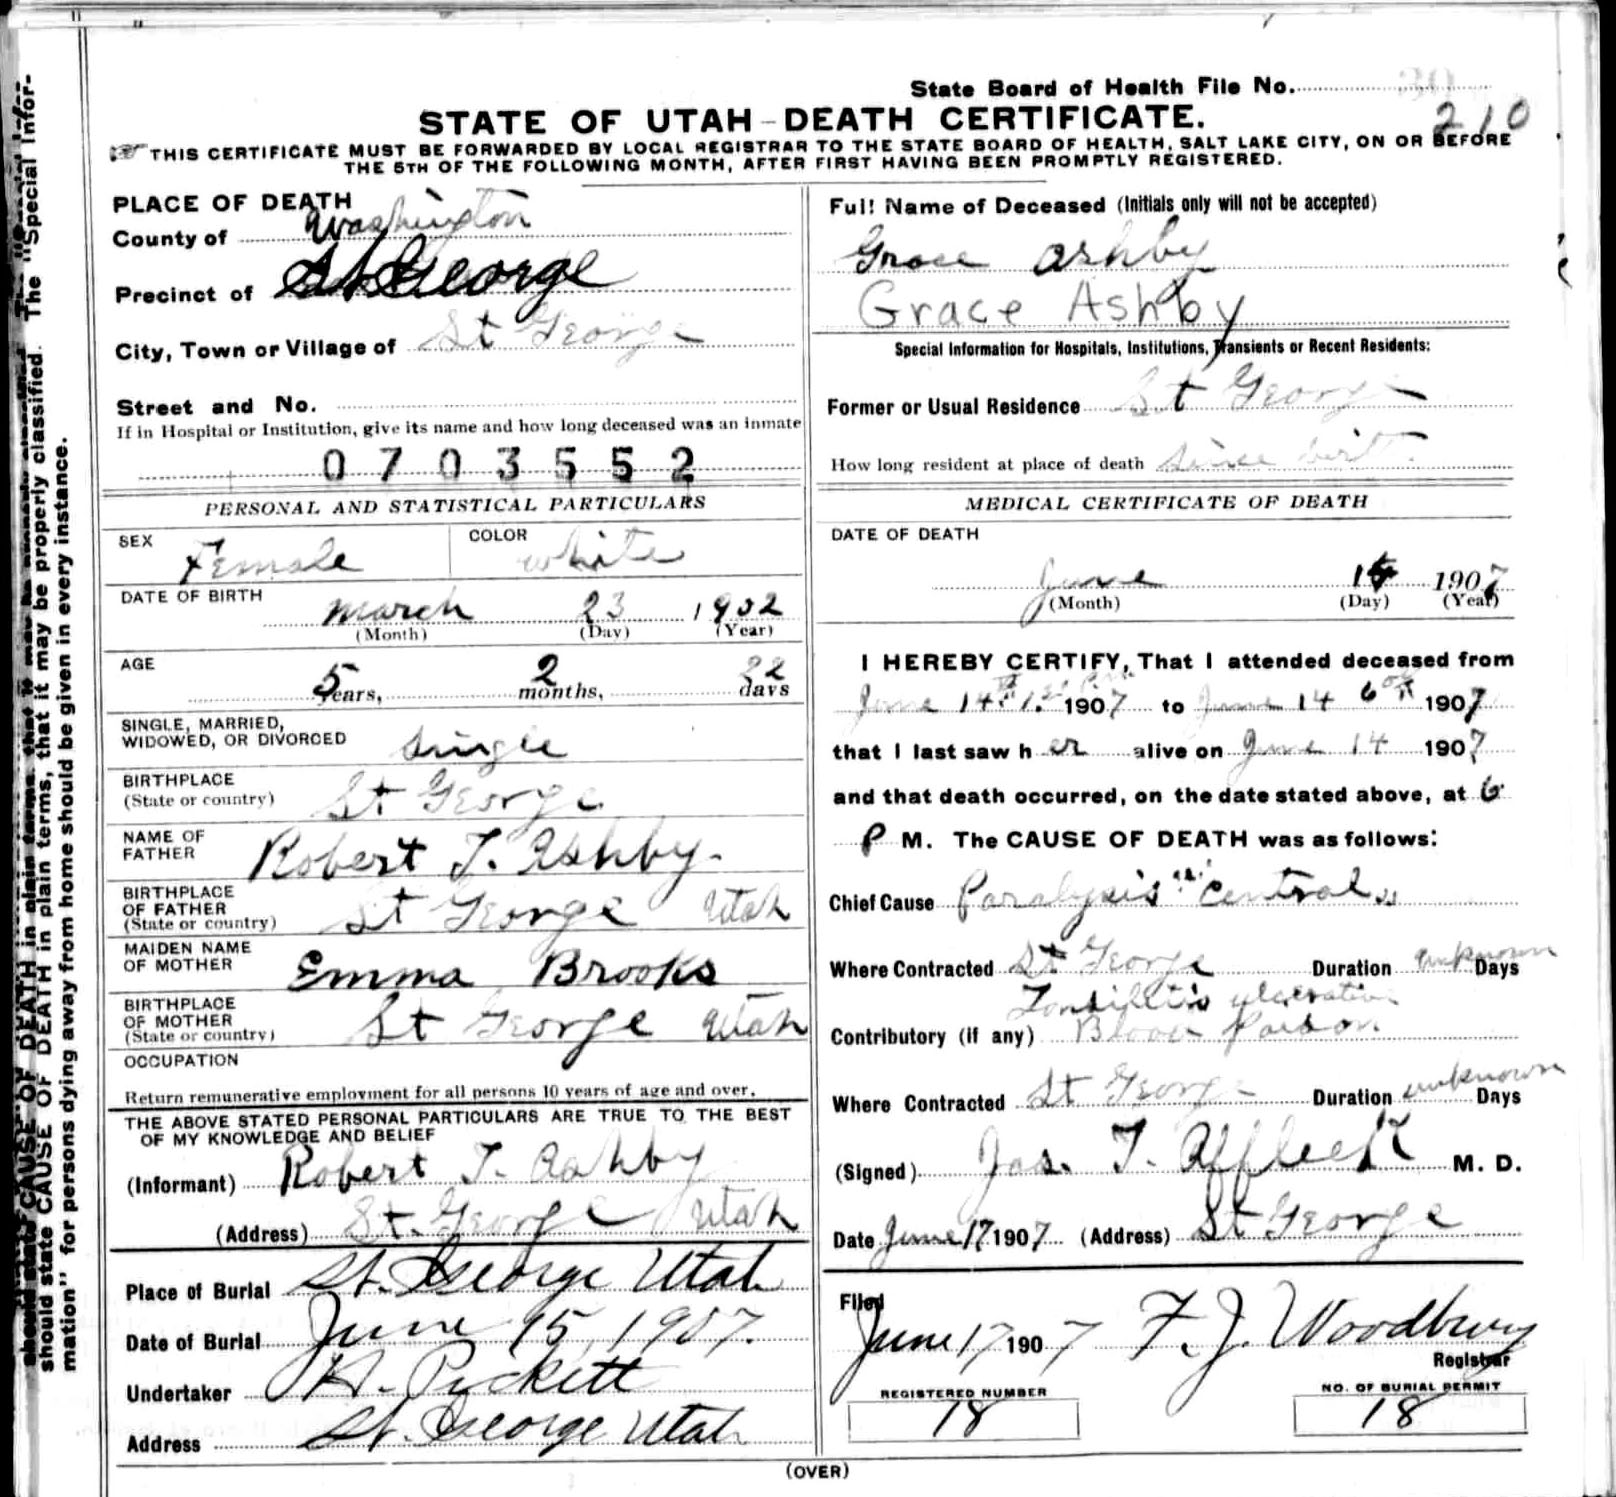 State Board of Health File No.
210
STATE OF UTAH - DEATH CERTIFICATE.
THIS CERTIFICATE MUST BE FORWARDED BY LOCAL REGISTRAR TO THE STATE BOARD OF HEALTH, SALT LAKE CITY, ON OR BEFORE
THE 5TH OF THE FOLLOWING MONTH, AFTER FIRST HAVING BEEN PROMPTLY REGISTERED.
PLACE OF DEATH
County of Washington
Precinct of St George
City, Town or Village of St George
Street and No.
If in Hospital or Institution, give its name and how long deceased was an inmate
0703552
PERSONAL AND STATISTICAL PARTICULARS
SEX Female COLOR white
DATE OF BIRTH
March 23 1902
(Month) (Day) (Year)
AGE
5 Years, 2 months, 22 days
SINGLE, MARRIED,
WIDOWED, OR DIVORCED Single
BIRTHPLACE
(State or country) St George
NAME OF
FATHER Robert T. Ashby.
BIRTHPLACE
OF FATHER
(State or country) St George Utah
MAIDEN NAME
OF MOTHER Emma Brooks
BIRTHPLACE
OF MOTHER
(State or country) St George Utah
OCCUPATION
Return remunerative employment for all persons 10 years of age and over.
THE ABOVE STATED PERSONAL PARTICULARS ARE TRUE TO THE BEST
OF MY KNOWLEDGE AND BELIEF
(Informant) Robert T. Ashby
(Address) St. George Utah
Place of Burial St. George Utah
Date of Burial June 15, 1907.
Undertaker H. Pickett
Address St. George Utah
Full Name of Deceased (Initials only will not be accepted)
Grace Ashby
Grace Ashby
Special Information for Hospitals, Institutions, Transients or Recent Residents:
Former or Usual Residence St George
How long resident at place of death since birt
MEDICAL CERTIFICATE OF DEATH
DATE OF DEATH
June 1907
(Month) (Day) (Year)
I HEREBY CERTIFY, That I attended deceased from
June 14th 1907 to June 14 6 1907
that I last saw her alive on June 14 1907
and that death occurred, on the date stated above, at 6
P M. The CAUSE OF DEATH was as follows:
Chief Cause Paralysis "Central"
Where Contracted St George Duration unknown Days
Tonsilitis ulcerative
Contributory (if any) Blood Poison
Where Contracted St George Duration unknown Days
(Signed) Jas. T. Affleck M. D.
Date June 17 1907 (Address) St George
Filed
June 17 1907 F. J. Woodbury
Registrar
REGISTERED NUMBER
18
NO. OF BURIAL PERMIT
18
(OVER)
should state CAUSE OF DEATH in plain terms, that it may be properly classified. The "Special Infor-
mation" for persons dying away from home should be given in every instance.